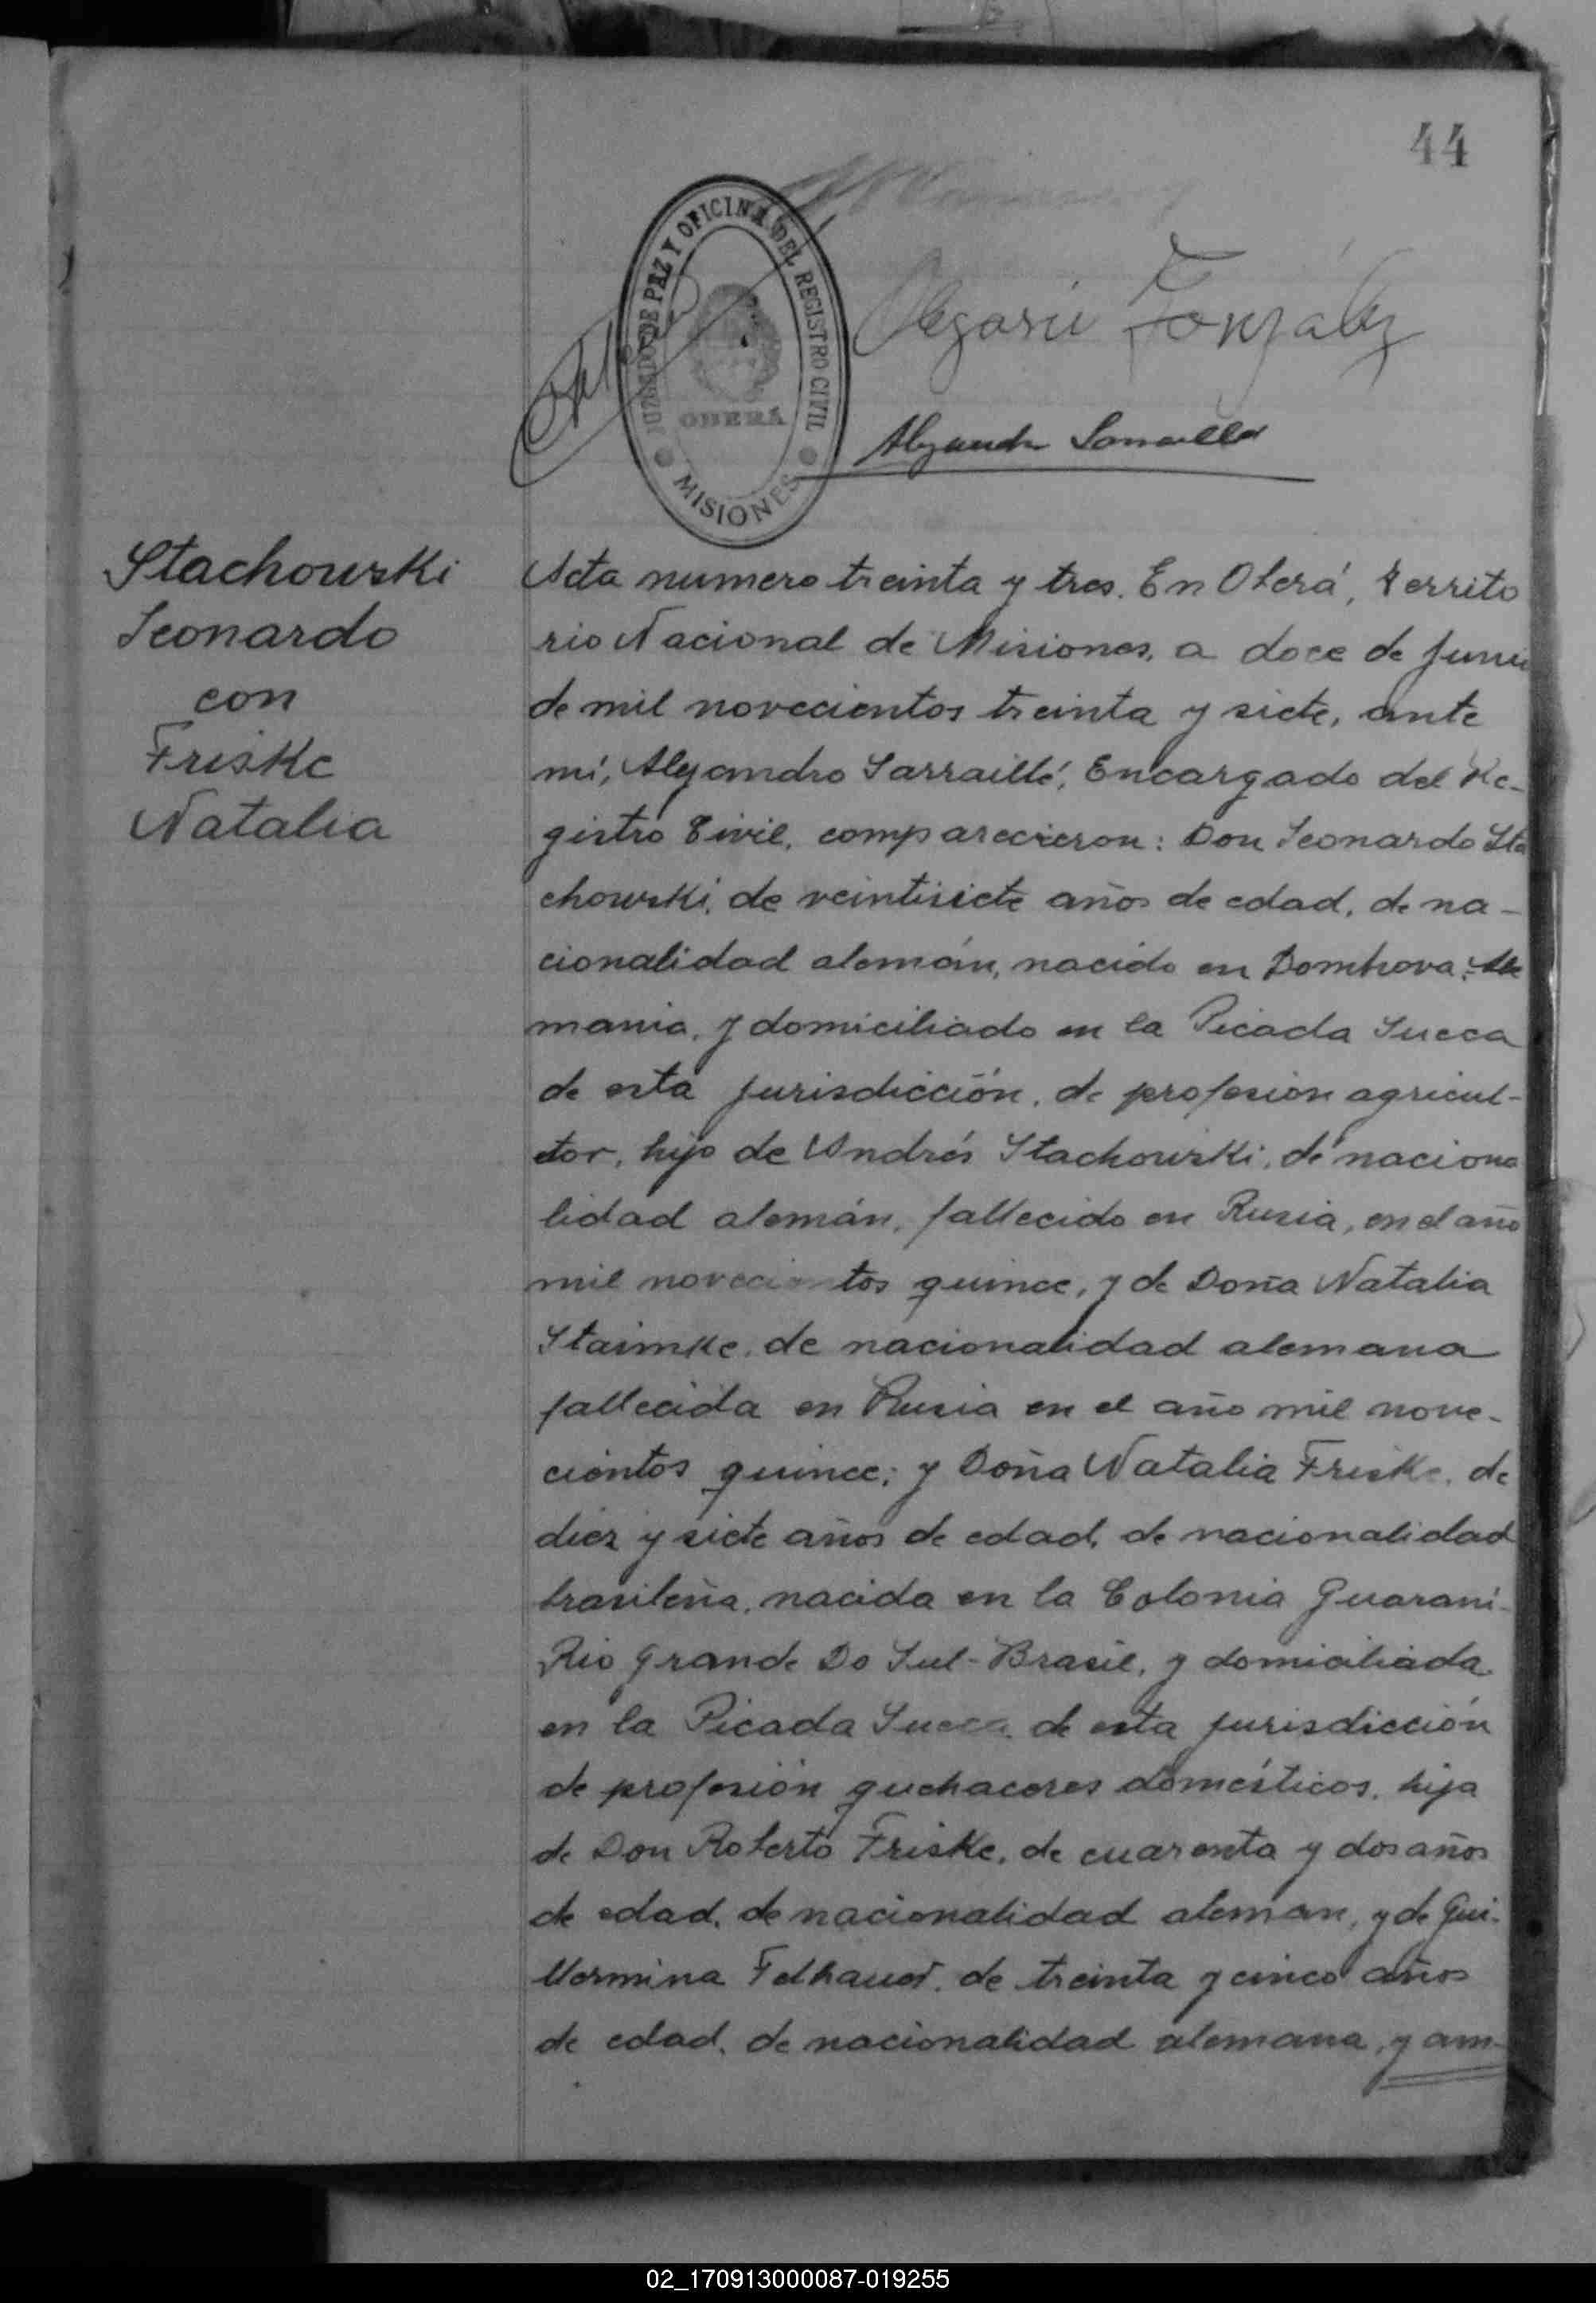 44
JUZGADO DE PAZ Y OFICINA DEL REGISTRO CIVIL
OBERÁ
MISIONES
Olegario González
Alejandro Sarraillé
Stachowski
Leonardo
con
Friske
Natalia
Acta numero treinta y tres. En Oberá, Territo
rio Nacional de Misiones, a doce de Junio
de mil novecientos treinta y siete, ante
mí, Alejandro Sarraillé, Encargado del Re-
gistro Civil, comparecieron: Don Leonardo Sta
chowski, de veintisiete años de edad, de na-
cionalidad alemán, nacido en Dombrova, Ale
mania, y domiciliado en la Picada Sueca
de esta jurisdicción, de profesión agricul-
tor, hijo de Andrés Stachowski, de naciona
lidad alemán, fallecido en Rusia, en el año
mil novecientos quince, y de Doña Natalia
Staimke, de nacionalidad alemana
fallecida en Rusia en el año mil nove-
cientos quince; y Doña Natalia Friske, de
diez y siete años de edad, de nacionalidad
brasileña, nacida en la Colonia Guaraní-
Rio Grande Do Sul-Brasil, y domiciliada
en la Picada Sueca, de esta jurisdicción
de profesión quehaceres domésticos, hija
de Don Roberto Friske, de cuarenta y dos años
de edad, de nacionalidad aleman, y de Gui-
llermina Felhauer, de treinta y cinco años
de edad, de nacionalidad alemana, y am-
02_170913000087-019255